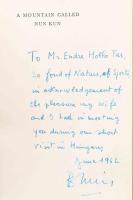 A MOUNTAIN CALLED
NUN KUN
To Mr. Endre Hotho Tas,
So fond of Nature, of Sports,
in acknowledgement of
the pleasure my wife
and I had in meeting
you during our short
visit in Hungary
June 1962